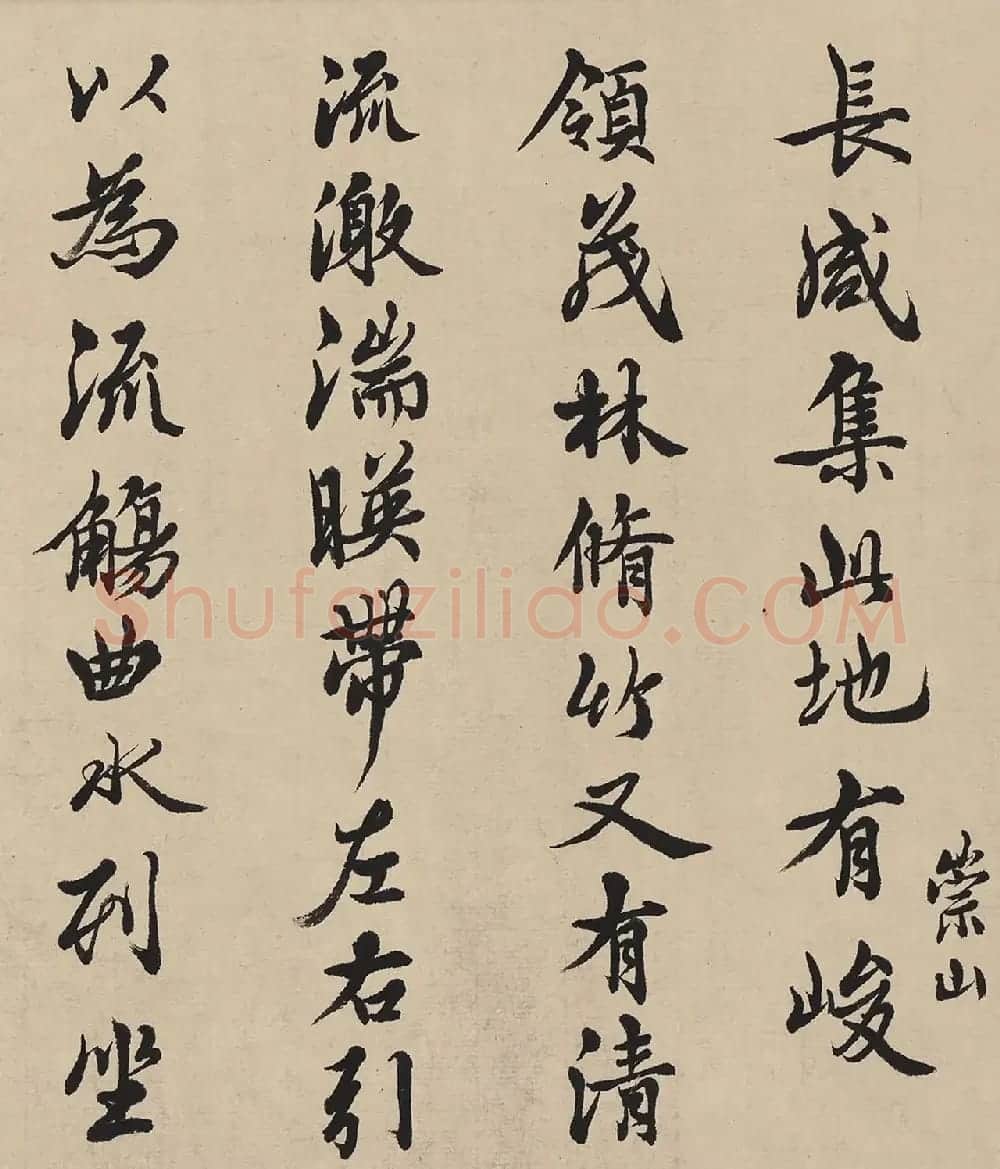 長咸集此地有峻
崇山
領茂林脩竹又有清
流激湍暎帶左右引
以為流觴曲水列坐
Shufazilidao.COM